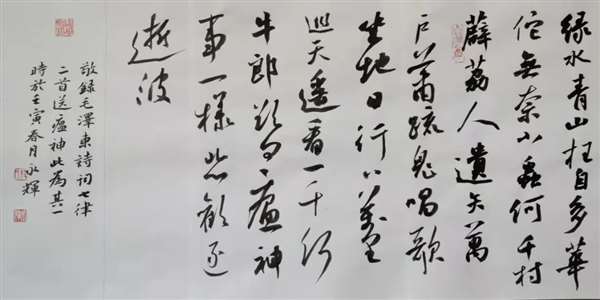 緑水青山枉自多華
佗無奈小蟲何千村
薜荔人遺矢萬
户蕭疏鬼唱歌
坐地日行八萬里
巡天遥看一千河
牛郎欲问瘟神
事一樣悲歡逐
逝波
敬録毛澤東詩詞七律
二首送瘟神此為其一
時於壬寅春月永輝